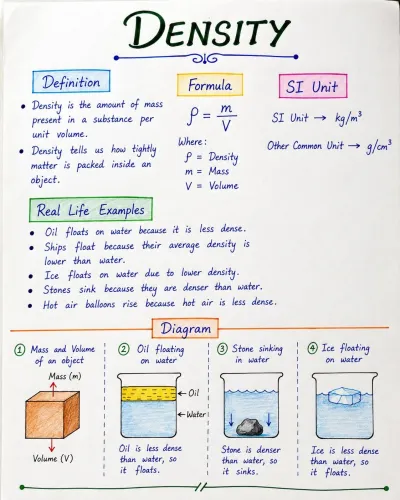 DENSITY
Definition
• Density is the amount of mass
present in a substance per
unit volume.
• Density tells us how tightly
matter is packed inside an
object.
Formula
ρ = m/V
Where:
ρ = Density
m = Mass
V = Volume
SI Unit
SI Unit → kg/m³
Other Common Unit → g/cm³
Real Life Examples
• Oil floats on water because it is less dense.
• Ships float because their average density is
lower than water.
• Ice floats on water due to lower density.
• Stones sink because they are denser than water.
• Hot air balloons rise because hot air is less dense.
Diagram
① Mass and Volume
of an object
Mass (m)
Volume (V)
② Oil floating
on water
← Oil
← Water
Oil is less dense
than water, so
it floats.
③ Stone sinking
in water
Stone is denser
than water, so
it sinks.
④ Ice floating
on water
Ice is less dense
than water, so
it floats.